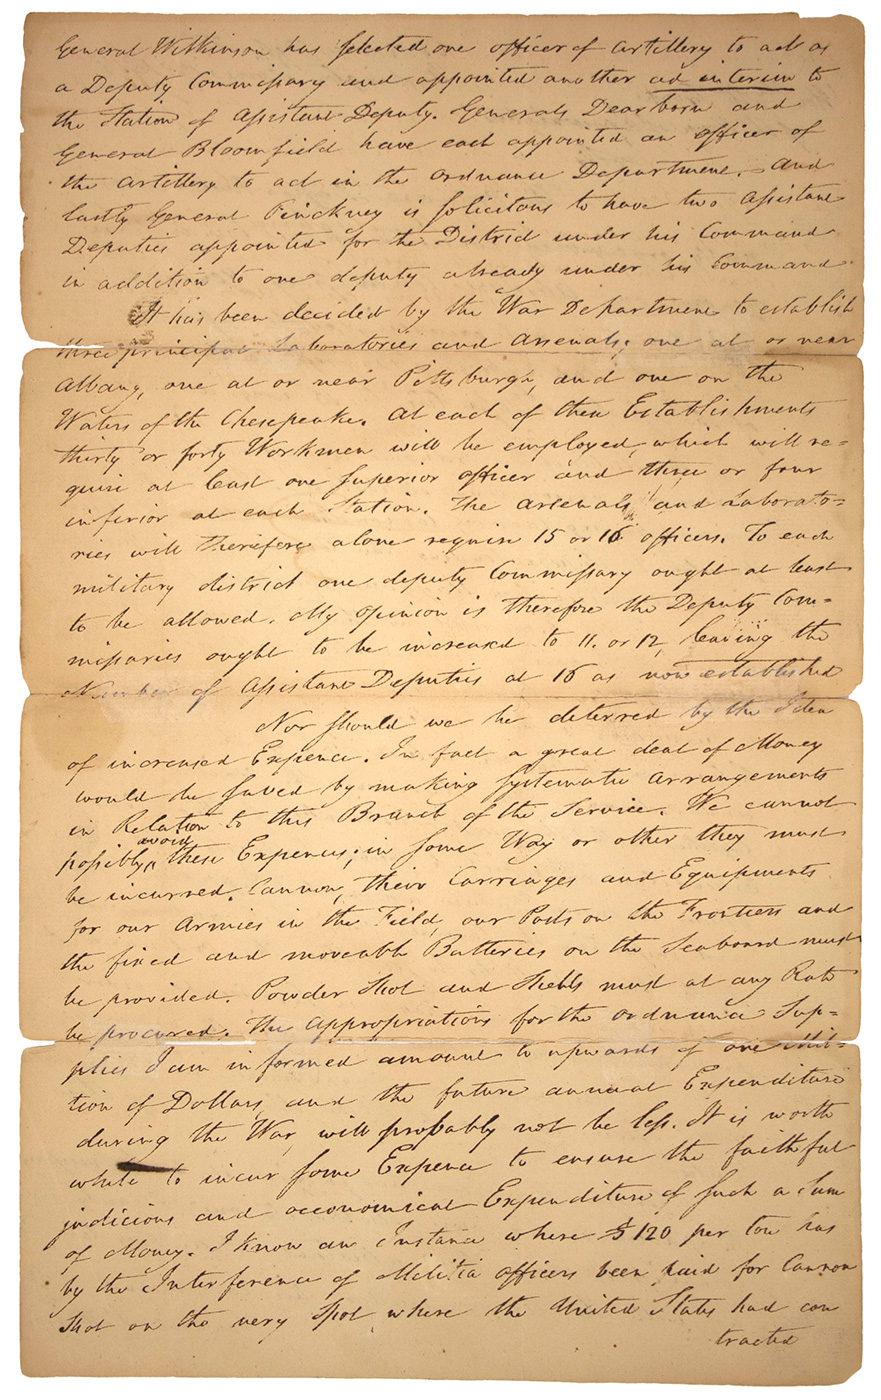 General Wilkinson has selected one officer of artillery to act as
a Deputy Commissary and appointed another ad interim to
the Station of Assistant Deputy. Generals Dearborn and
General Bloomfield have each appointed an officer of
the artillery to act in the ordnance Department. And
lastly General Pinckney is solicitous to have two Assistant
Deputies appointed for the District under his Command
in addition to one deputy already under his Command.
It has been decided by the War Department to establish
three principal Laboratories and Arsenals; one at or near
Albany, one at or near Pittsburgh, and one on the
Waters of the Chesepeake. At each of these Establishments
thirty or forty Workmen will be employed, which will re=
quire at least one superior officer and three or four
inferior at each Station. The Arsenals and Laborato=
ries will therefore alone require 15 or 16 officers. To each
military district one deputy Commissary ought at least
to be allowed. My opinion is therefore the Deputy Com=
missaries ought to be increased to 11. or 12, leaving the
Number of Assistant Deputies at 16 as now established
Nor should we be deterred by the Idea
of increased Expence. In fact a great deal of Money
would be saved by making systematic arrangements
in Relation to this Branch of the Service. We cannot
possibly avoid these Expences; in some Way or other they must
be incurred. Cannon, their Carriages and Equipments
for our Armies in the Field, our Posts on the Frontiers and
the fixed and moveable Batteries on the Seaboard must
be provided. Powder Shot and Shells must at any Rate
be procured. The Appropriations for the ordnance Sup=
plies I am informed amount to upwards of one Mil=
tion of Dollars, and the future annual Expenditure
during the War, will probably not be less. It is worth
while to incur some Expence to ensure the faithful
judicious and oeconomical Expenditure of such a Sum
of Money. I know an Instance where $120 per ton has
by the Interference of Militia officers been paid for Cannon
Shot on the very Spot where the United States had con
tracted